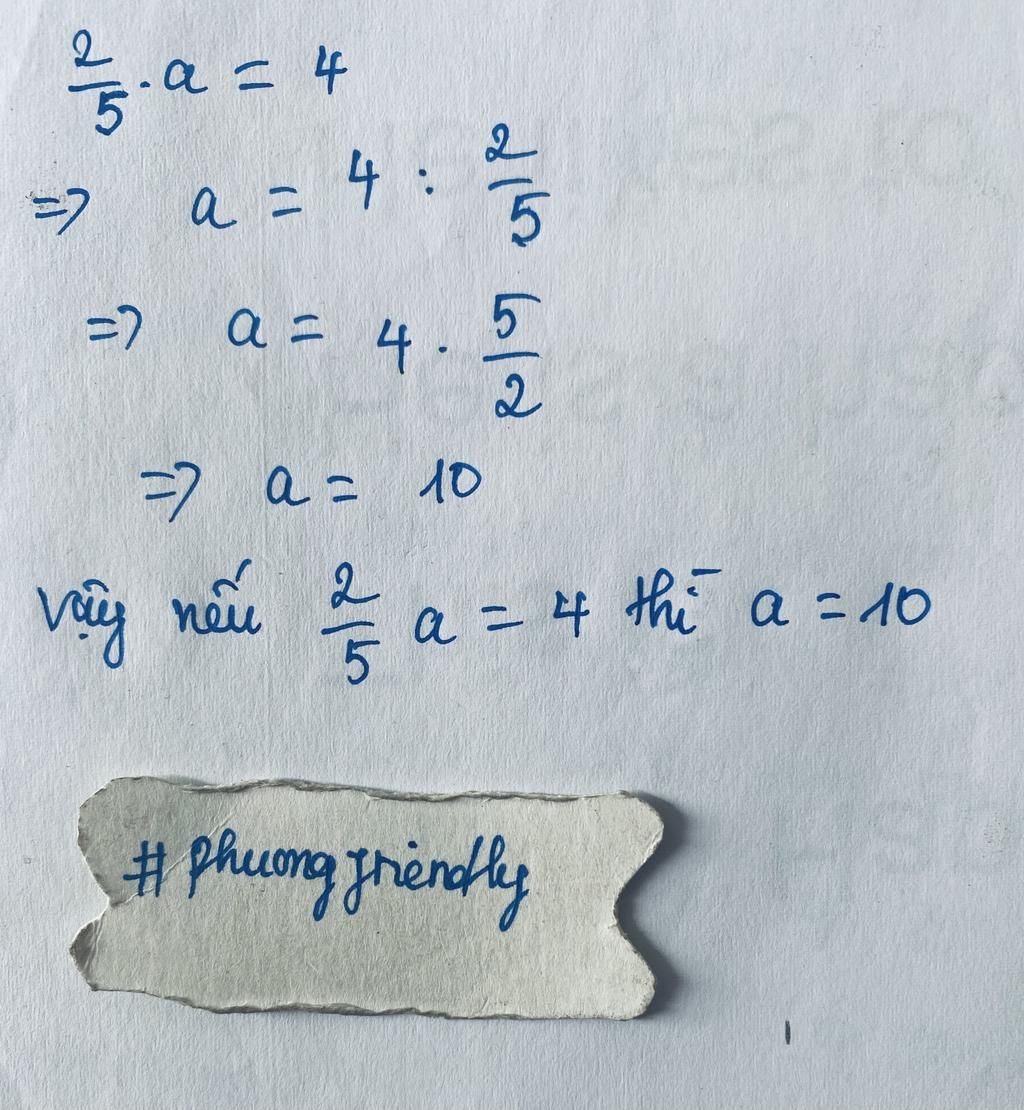 2/5 . a = 4
=> a = 4 : 2/5
=> a = 4 . 5/2
=> a = 10
Vậy nếu 2/5 a = 4 thì a = 10
# phuongfriendly